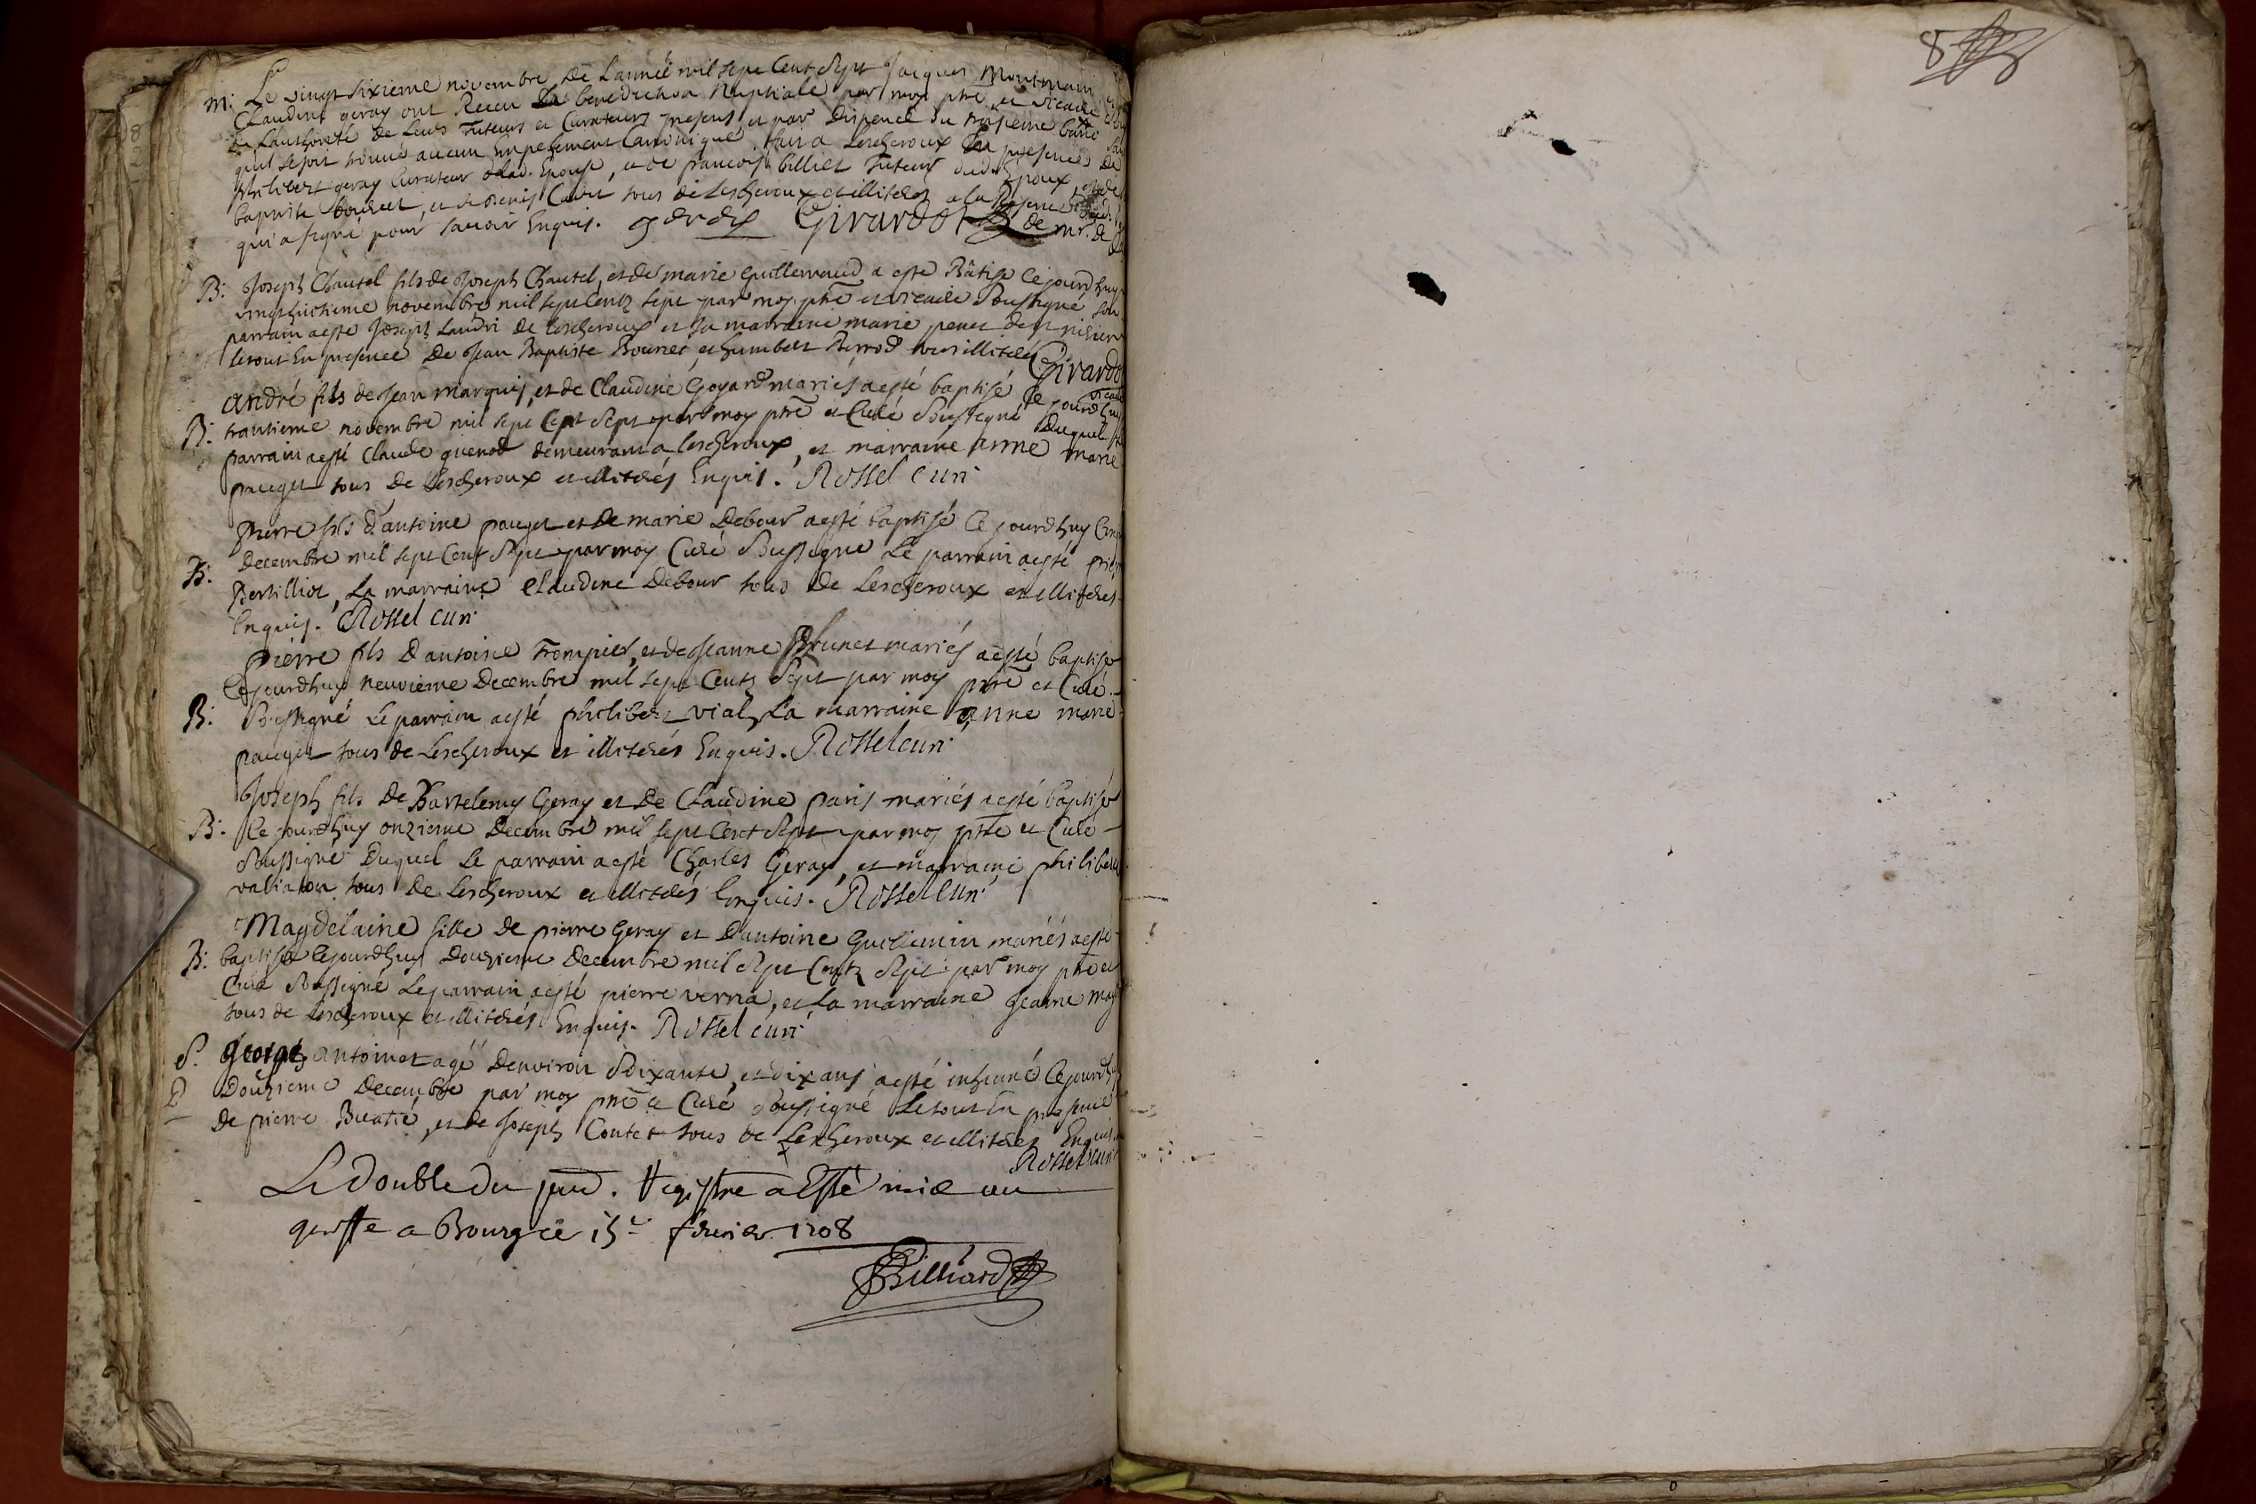 8
M: Le vingt sixieme novembre De Lannée mil sept Cent Sept Jacques Montmain
Claudine geray ont Receu La benediction Nuptiale par moy ptre et vicaire
de Lauthorité de Leurs Tuteurs et Curateurs presens et par Dispence du troisieme banc
quil se soit trouvé aucun Empechement Canonique, fait a Lescheroux En presence De
philibert geray Curateur de lad. Epouse, et de francois billiet Tuteur dud. Epoux, et de
baptiste bouchet, et de denis Cavet tous de Lescheroux et illiteres a la Reserve
qui a signé pour savoir Enquis. Girardot de mr. de
B: Joseph Chautel fils de Joseph Chautel, et de marie Guillermaud a esté Bâtisé Cejourdhuy
vingthuictieme novembre mil sept Centz sept par moy ptre et vicaire Soussigné Son
parrain a esté Joseph Landri de Lescheroux et sa marraine marie
le tout En presence De Jean Baptiste Bounet et humbert Perrod tous illiterés Girardot
vicaire
André fils de Jean marquis, et de Claudine Goyard mariés a esté baptisé Ce jourdhuy
B: trantieme novembre mil sept Cent Sept par moy ptre et Curé Soussigné Duquel le
parrain a esté Claude guenod demeurant a lescheroux, et marraine anne marie
pauget tous De Lescheroux et illiterés Enquis. Rossel curé
Pierre fils d'antoine pauget et De marie Debour a esté baptisé Ce jourdhuy Cinq
B: Decembre mil sept Cent Sept par moy Curé Soussigné Le parrain a esté pierre
Bertilliot, La marraine Claudine Debour tous De Lescheroux et illiteres
Enquis. Rossel curé
pierre fils D'antoine Trompier, et de Jeanne Brunet mariés a esté baptisé
Cejourdhuy neuvieme Decembre mil sept Centz Sept par moy ptre et Curé
B: Soussigné Le parrain a esté philibert vial, La marraine anne marie
pauget tous de Lescheroux et illiterés Enquis. Rossel curé
Joseph fils De Bartelemy Geray et De Claudine paris mariés a esté baptisé
B: Ce jourdhuy onzieme Decembre mil sept Cent Sept par moy ptre et Curé
Soussigné Duquel Le parrain a esté Charles Geray, et marraine philiberte
tous De Lescheroux et illiterés Enquis. Rossel curé
Magdelaine fille de pierre Geray et D'antoine Guillemin mariés a esté
B: baptisée Cejourdhuy Douzieme Decembre mil Sept Centz Sept par moy ptre et
Curé Soussigné Le parrain a esté pierre verna, et La marraine Jeanne
tous de Lescheroux et illiterés Enquis. Rossel curé
S. George antoinet agé Denviron Soixante, et dix ans a esté inhumé Cejourdhuy
Douzieme Decembre par moy ptre et Curé Soussigné Le tout En presence
de pierre Buatié, et de Joseph Contet tous de Lescheroux et illiteres Enquis
Rossel curé
Le double du pnt. Registre a Esté mis au
greffe a Bourg ce 15e fevrier 1708
Billiard
8